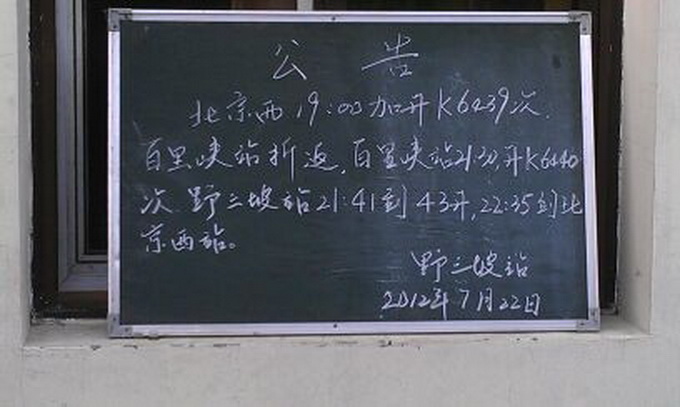 公 告
北京西 19:00加开K6439次.
百里峡站折返,百里峡站21:30开K6440
次 野三坡站21:41到43开,22:35到北
京西站。
野三坡站
2012年7月22日